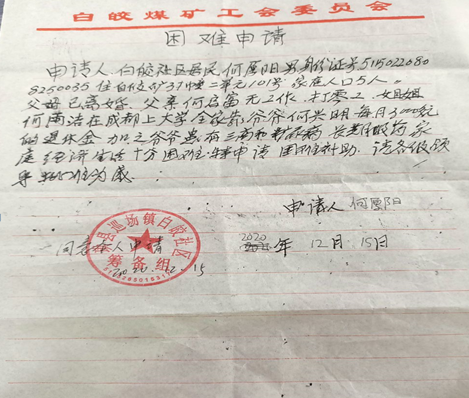 白皎煤矿工会委员会
困难申请
申请人、白皎社区居民，何愿阳 男 身份证号5115022080
8250035 住白皎矿37幢二单元101号 家在人口5人。
父母已离婚，父亲何启富无工作，打零工，姐姐
何雨洁在成都上大学，全家靠爷爷何兴明每月3000元
的退休金，加之爷爷患有三高和 病 长期服药 家
庭经济生活十分困难，特申请困难补助。请各级领
导 为感
申请人 何愿阳
同意 本人申请
县巡场镇白皎社区
筹备组
2020.12.15
2020年 12月15日